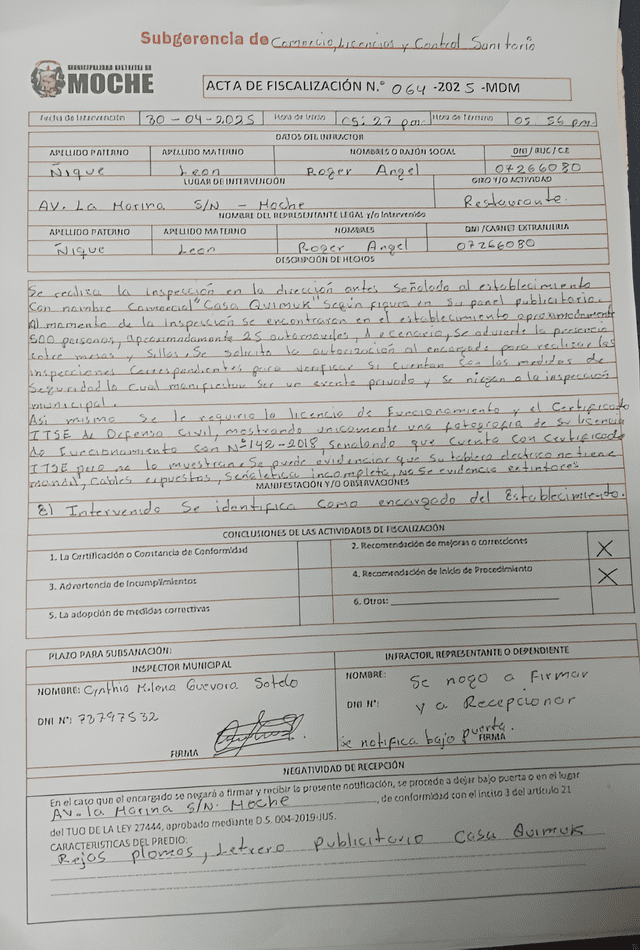 Subgerencia de Comercio, Licencias y Control Sanitario
MUNICIPALIDAD DISTRITAL DE
MOCHE
ACTA DE FISCALIZACIÓN N.° 064 -2025 -MDM
Fecha de Intervención 30 - 04 - 2025 Hora de Inicio 05: 27 pm. Hora de Término 05: 56 pm.
DATOS DEL INFRACTOR
APELLIDO PATERNO APELLIDO MATERNO NOMBRES O RAZÓN SOCIAL DNI / RUC / C.E
Ñique Leon Roger Angel 07266080
LUGAR DE INTERVENCIÓN GIRO Y/O ACTIVIDAD
AV. La Marina S/N - Moche Restaurante.
NOMBRE DEL REPRESENTANTE LEGAL y/o Intervenido
APELLIDO PATERNO APELLIDO MATERNO NOMBRES DNI / CARNET EXTRANJERIA
Ñique Leon Roger Angel 07266080
DESCRIPCIÓN DE HECHOS
Se realiza la inspección en la dirección antes señalada al establecimiento
Con nombre Comercial "Casa Quimuk" Según figura en su panel publicitario.
Al momento de la inspección se encontraron en el establecimiento aproximadamente
500 personas, aproximadamente 25 automoviles, 1 ecenario, Se advierte la presencia
entre mesas y Sillas. Se Solicito la autorización al encargado para realizar las
inspecciones Correspondientes para verificar Si cuentan con las medidas de
Seguridad lo Cual manifestur Ser un evente privado y se niegan a la inspección
municipal.
Asi mismo Se le requirio la licencia de Funcionamiento y el Certificado
ITSE de Defensa Civil, mostrando unicamente una fotografia de su licencia
de Funcionamiento con N°142-2018, señalando que Cuenta Con Certificado
ITSE pero no lo muestran. Se puede evidenciar que su tablero electrico no tiene
mandil, Cables expuestos, Señaletica incompleta, No Se evidencia extintores
MANIFESTACIÓN Y/O OBSERVACIONES
El Intervenido Se identifica Como encargado del Establecimiento.
CONCLUSIONES DE LAS ACTIVIDADES DE FISCALIZACIÓN
1. La Certificación o Constancia de Conformidad 2. Recomendación de mejoras o correcciones X
3. Advertencia de Incumplimientos 4. Recomendación de Inicio de Procedimiento X
5. La adopción de medidas correctivas 6. Otros:
PLAZO PARA SUBSANACIÓN:
INSPECTOR MUNICIPAL INFRACTOR, REPRESENTANTE O DEPENDIENTE
NOMBRE: Cynthia Milena Guevara Sotelo NOMBRE: Se nego a Firmar
DNI N°: 73797532 DNI N°: y a Recepcionar
se notifica bajo puerta.
FIRMA FIRMA
NEGATIVIDAD DE RECEPCIÓN
En el caso que el encargado se negará a firmar y recibir la presente notificación, se procede a dejar bajo puerta o en el lugar
AV. la Marina S/N. Moche, de conformidad con el inciso 3 del artículo 21
del TUO DE LA LEY 27444, aprobado mediante D.S. 004-2019-JUS.
CARACTERÍSTICAS DEL PREDIO:
Rejas plomas, Letrero Publicitario Casa Quimuk